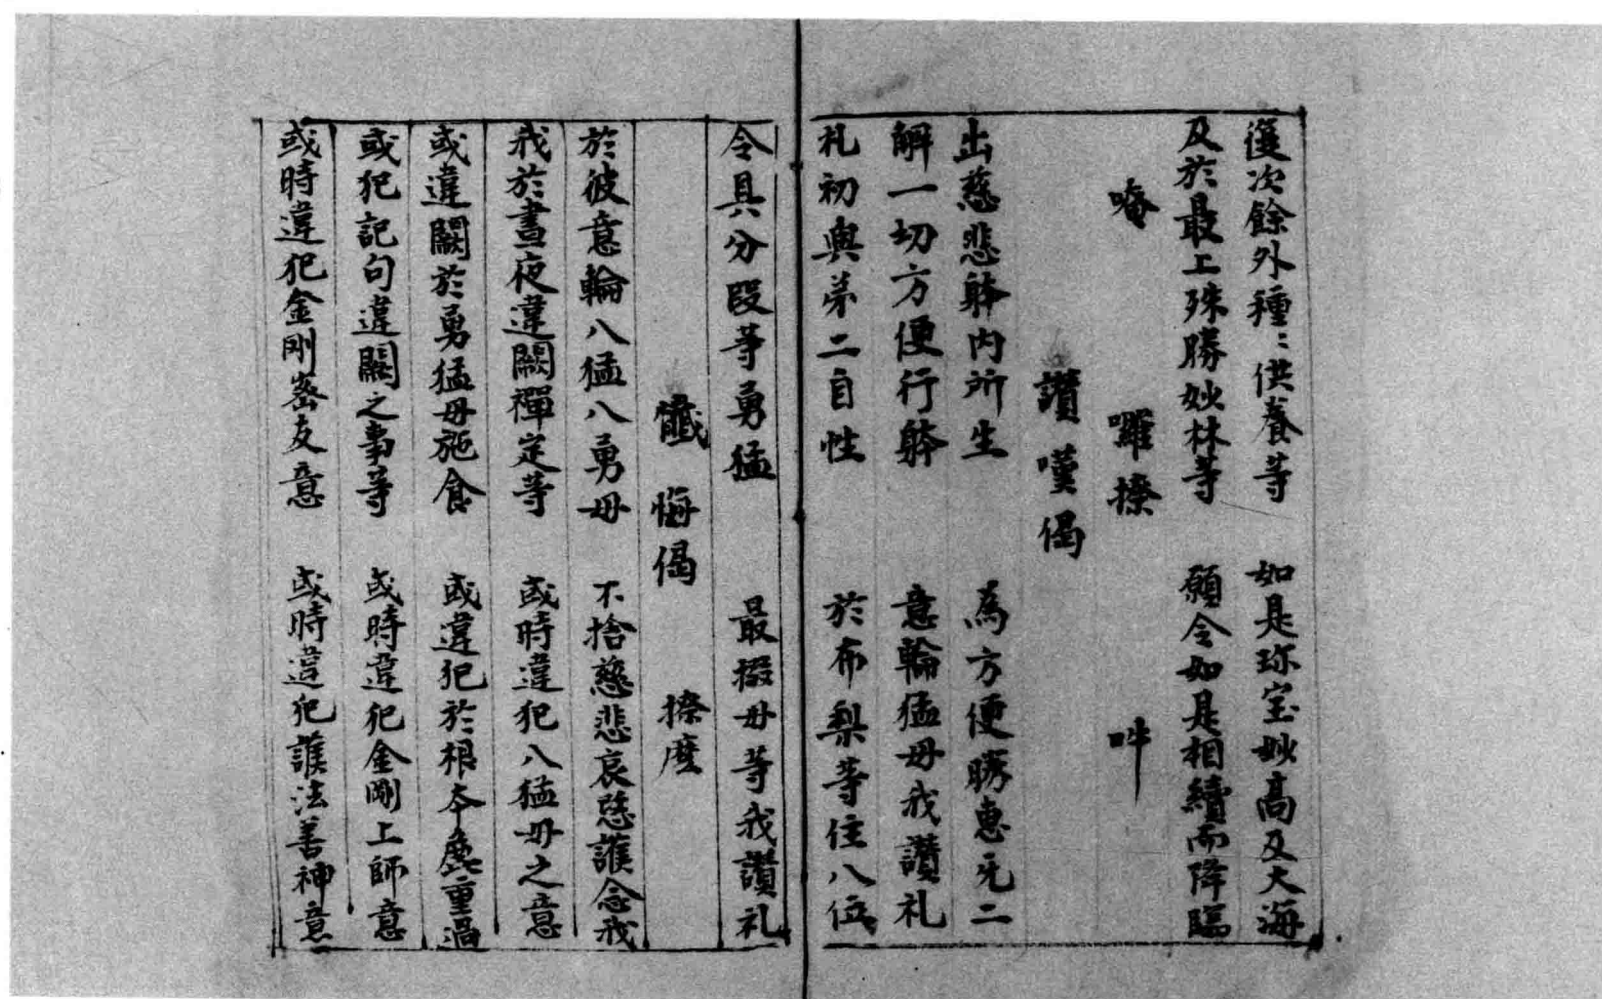 復次餘外種〻供養等　如是珎宝妙高及大海
及於最上殊勝妙林等　願令如是相續而降臨
唵　囉搽　吽
讚嘆偈
出慈悲躰内所生　為方便勝惠无二
解一切方便行躰　意輪猛母我讃礼
札初與苐二自性　於布梨等住八位
令具分段等勇猛　最掇母等我讃礼
懺悔偈　搽麽
於彼意輪八猛八勇母　不捨慈悲哀愍護念我
我於晝夜違闕禪定等　或時違犯八猛母之意
或違闕於勇猛母施食　或違犯於根夲麁重過
或犯記句違闕之事等　或時違犯金剛上師意
或時違犯金剛宻友意　或時違犯護法善神意